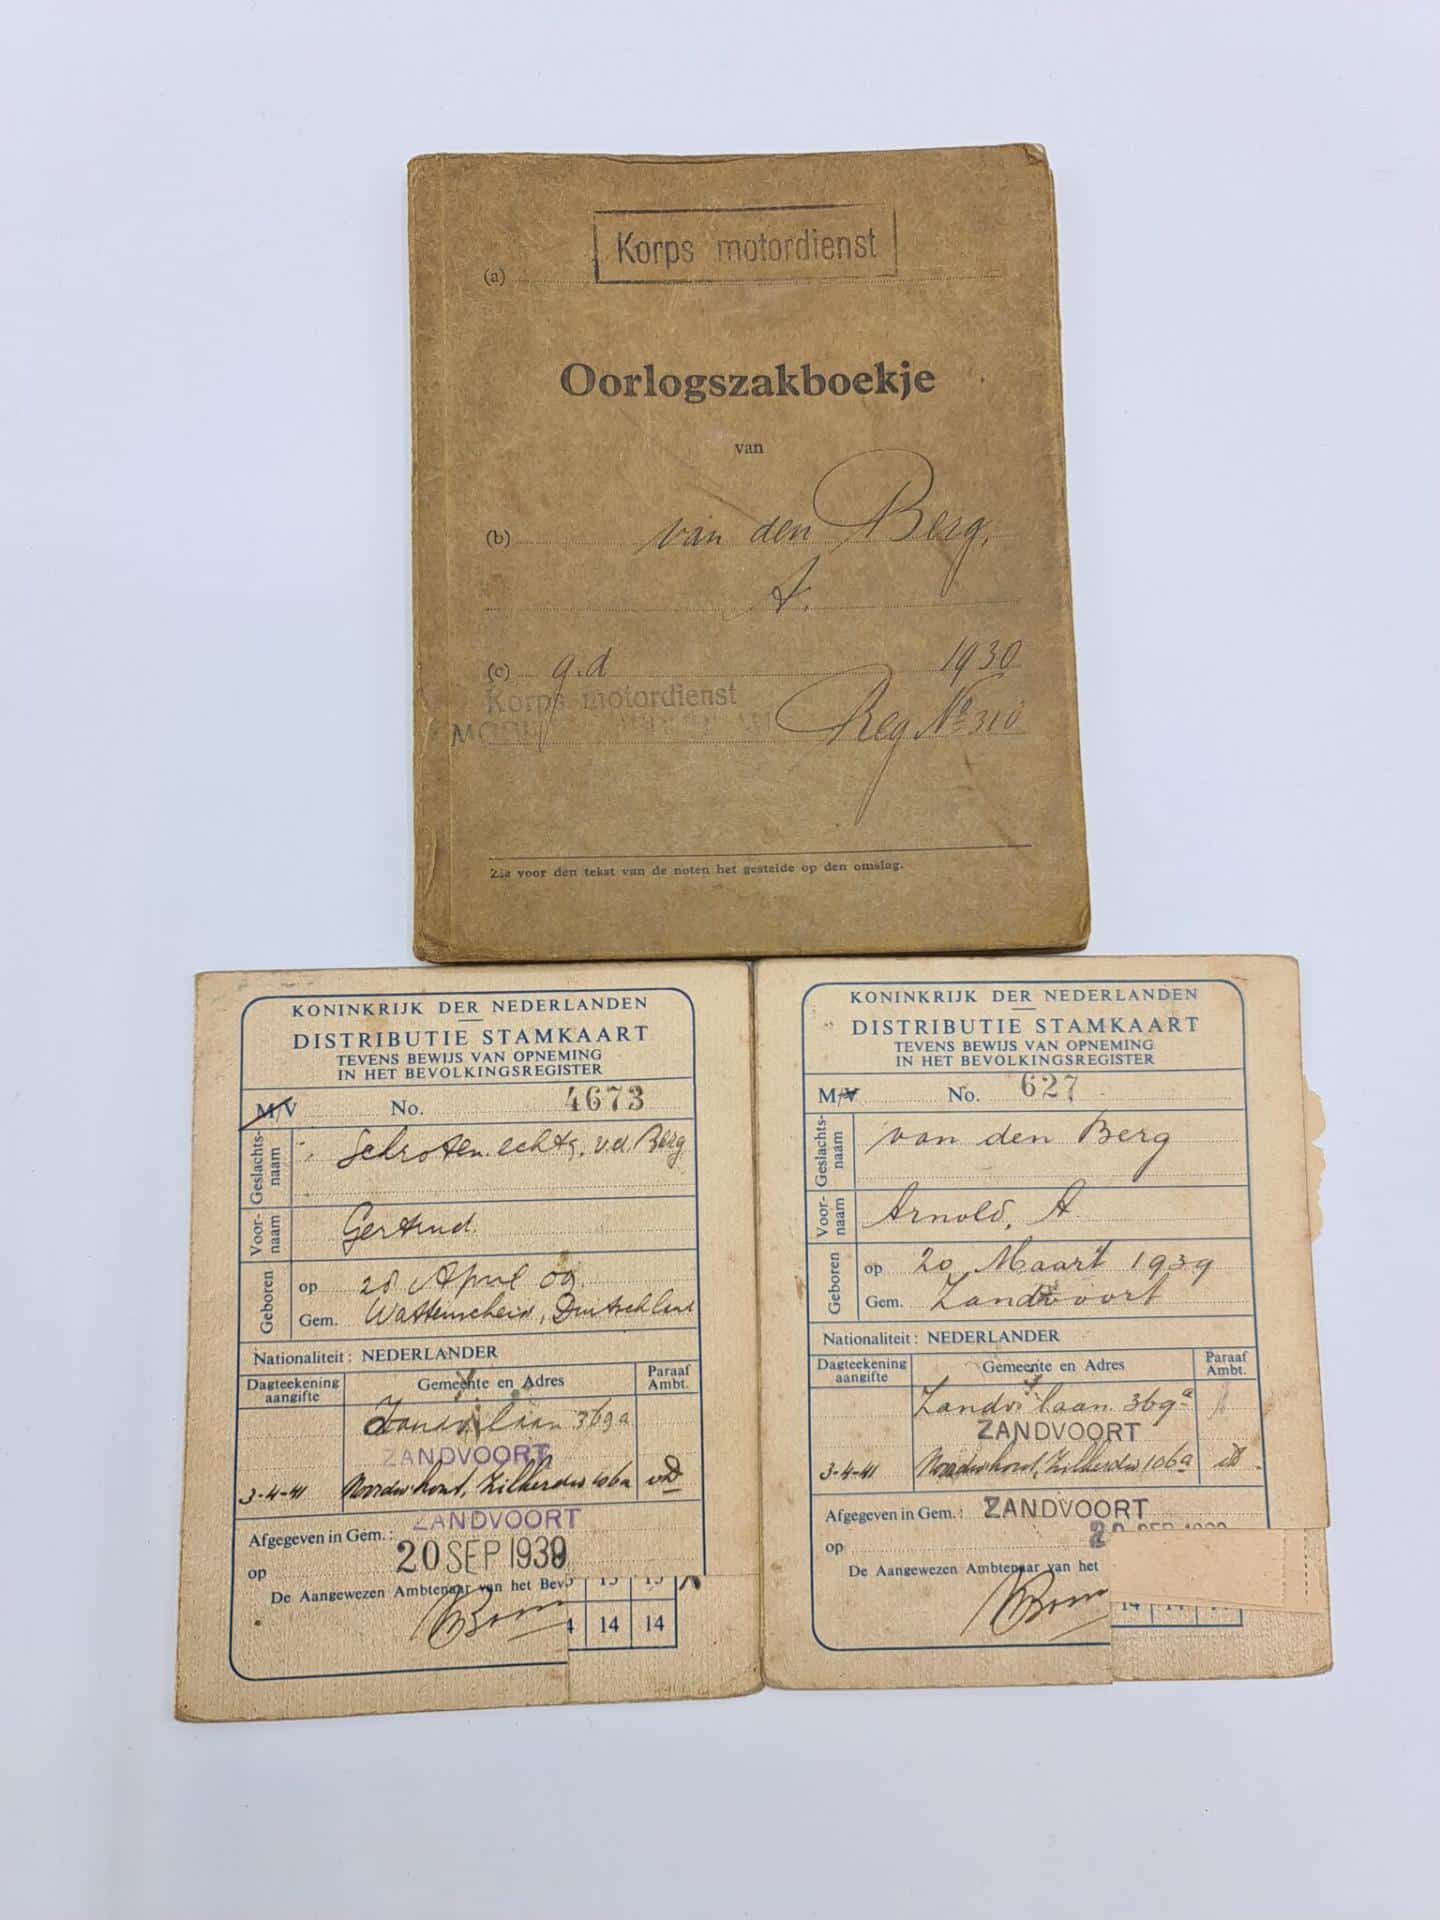 Korps motordienst
(a)
Oorlogszakboekje
van
(b) van den Berg,
A.
(c) g.d 1930
Korps motordienst
Reg No 310
Zie voor den tekst van de noten het gestelde op den omslag.
KONINKRIJK DER NEDERLANDEN
DISTRIBUTIE STAMKAART
TEVENS BEWIJS VAN OPNEMING
IN HET BEVOLKINGSREGISTER
M/V No. 4673
Geslachts-
naam
echtg. v.d. Berg
Voor-
naam
Gertrud
Geboren
op 28 April 09
Gem. Wattenscheid, Duitschland
Nationaliteit: NEDERLANDER
Dagteekening
aangifte
Gemeente en Adres
Paraaf
Ambt.
Zandv. laan 369a
ZANDVOORT
3-4-41 Noordwijkerhout, Zilkerdw 106a
Afgegeven in Gem.: ZANDVOORT
op 20 SEP 1939
De Aangewezen Ambtenaar van het Bev
13 13
14 14
KONINKRIJK DER NEDERLANDEN
DISTRIBUTIE STAMKAART
TEVENS BEWIJS VAN OPNEMING
IN HET BEVOLKINGSREGISTER
M/V No. 627
Geslachts-
naam
van den Berg
Voor-
naam
Arnold, A
Geboren
op 20 Maart 1939
Gem. Zandvoort
Nationaliteit: NEDERLANDER
Dagteekening
aangifte
Gemeente en Adres
Paraaf
Ambt.
Zandv. laan 369a
ZANDVOORT
3-4-41 Zilkerdw 106a
Afgegeven in Gem.: ZANDVOORT
op
De Aangewezen Ambtenaar van het
14 14